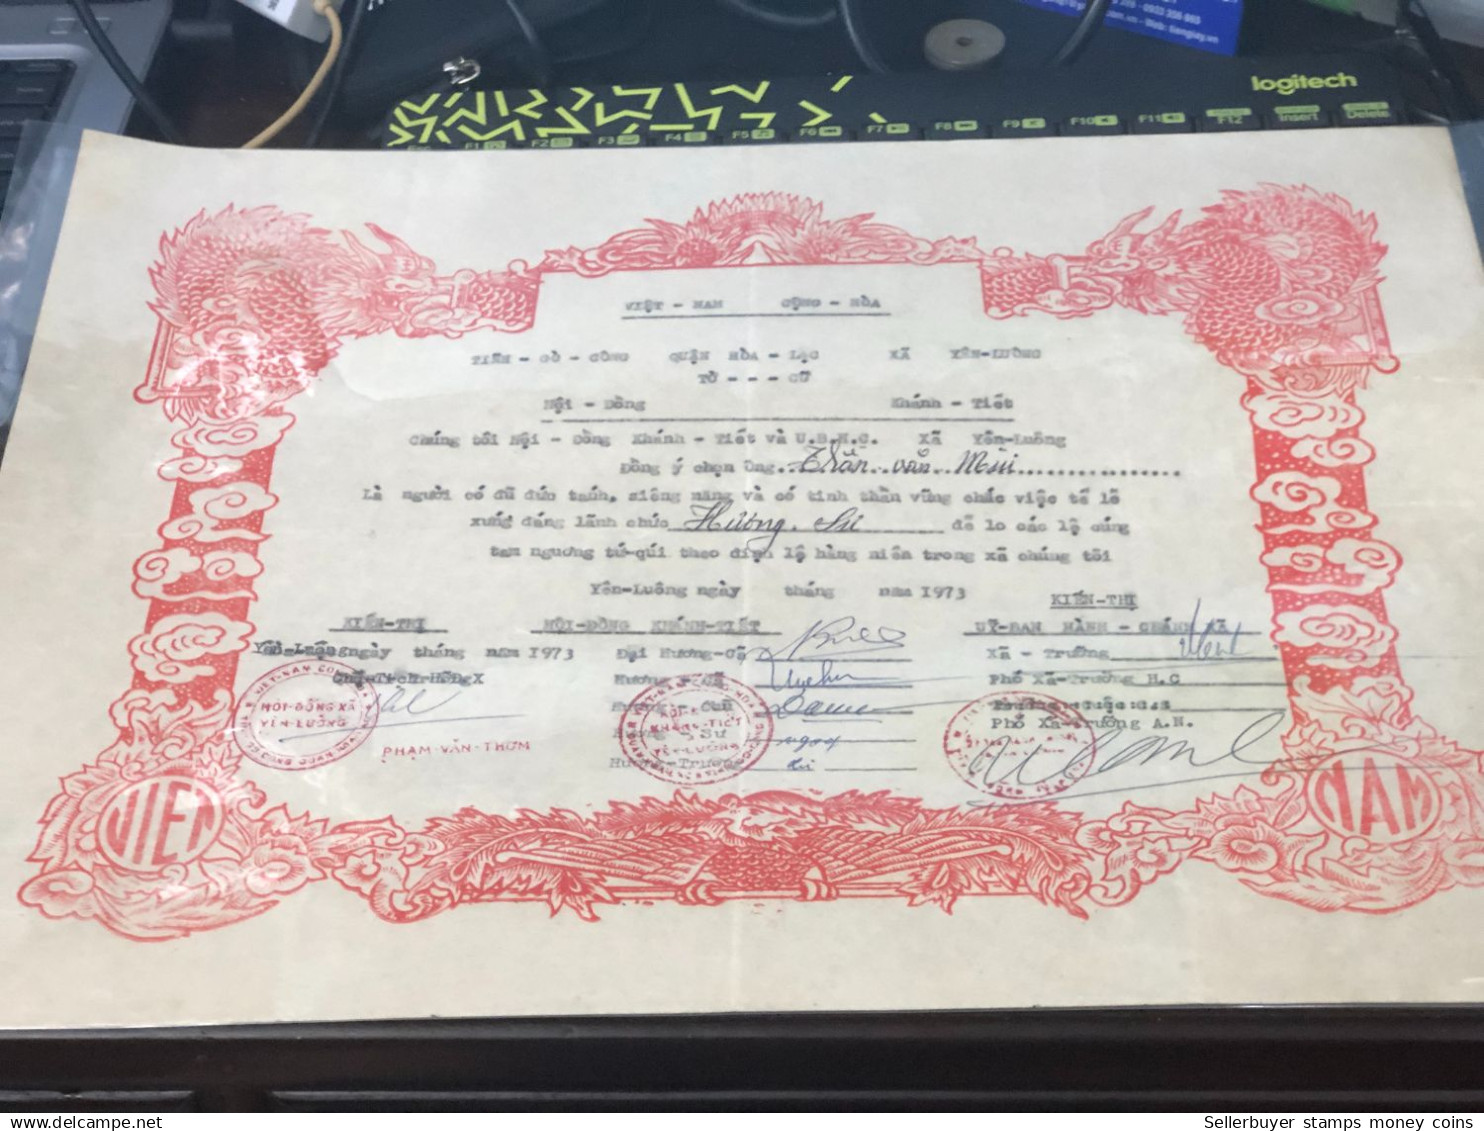 logitech
F1 F2 F3 F4 F5 F6 F7 F8 F9 F10 F11 F12 Insert Delete
VIỆT - NAM CỘNG - HÒA
TỈNH - GÒ - CÔNG QUẬN HÒA - LẠC XÃ YÊN-LUÔNG
TỜ - - - CỬ
Hội - Đồng Khánh - Tiết
Chúng tôi Hội - Đồng Khánh - Tiết và U.B.H.C. Xã Yên-Luông
Đồng ý chọn Ông Trần văn Mùi
Là người có đủ đức tánh, siêng năng và có tinh thần vững chắc việc tế lễ
xứng đáng lãnh chức Hương Sư để lo các lệ cúng
tam ngươn tứ-quí theo định lệ hàng niên trong xã chúng tôi
Yên-Luông ngày tháng năm 1973
KIẾN-THỊ
KIẾN-THỊ HỘI-ĐỒNG KHÁNH-TIẾT UỶ-BAN HÀNH - CHÁNH XÃ
Yên-Luông ngày tháng năm 1973 Đại Hương-Cả Xã - Trưởng
Phó Xã-Trưởng H.C
Phó Xã-Trưởng A.N.
HỘI-ĐỒNG XÃ
YÊN-LUÔNG
PHẠM-VĂN-THƠM
Hương - Sư
Hương-Trưởng
VIỆT NAM
Sellerbuyer stamps money coins